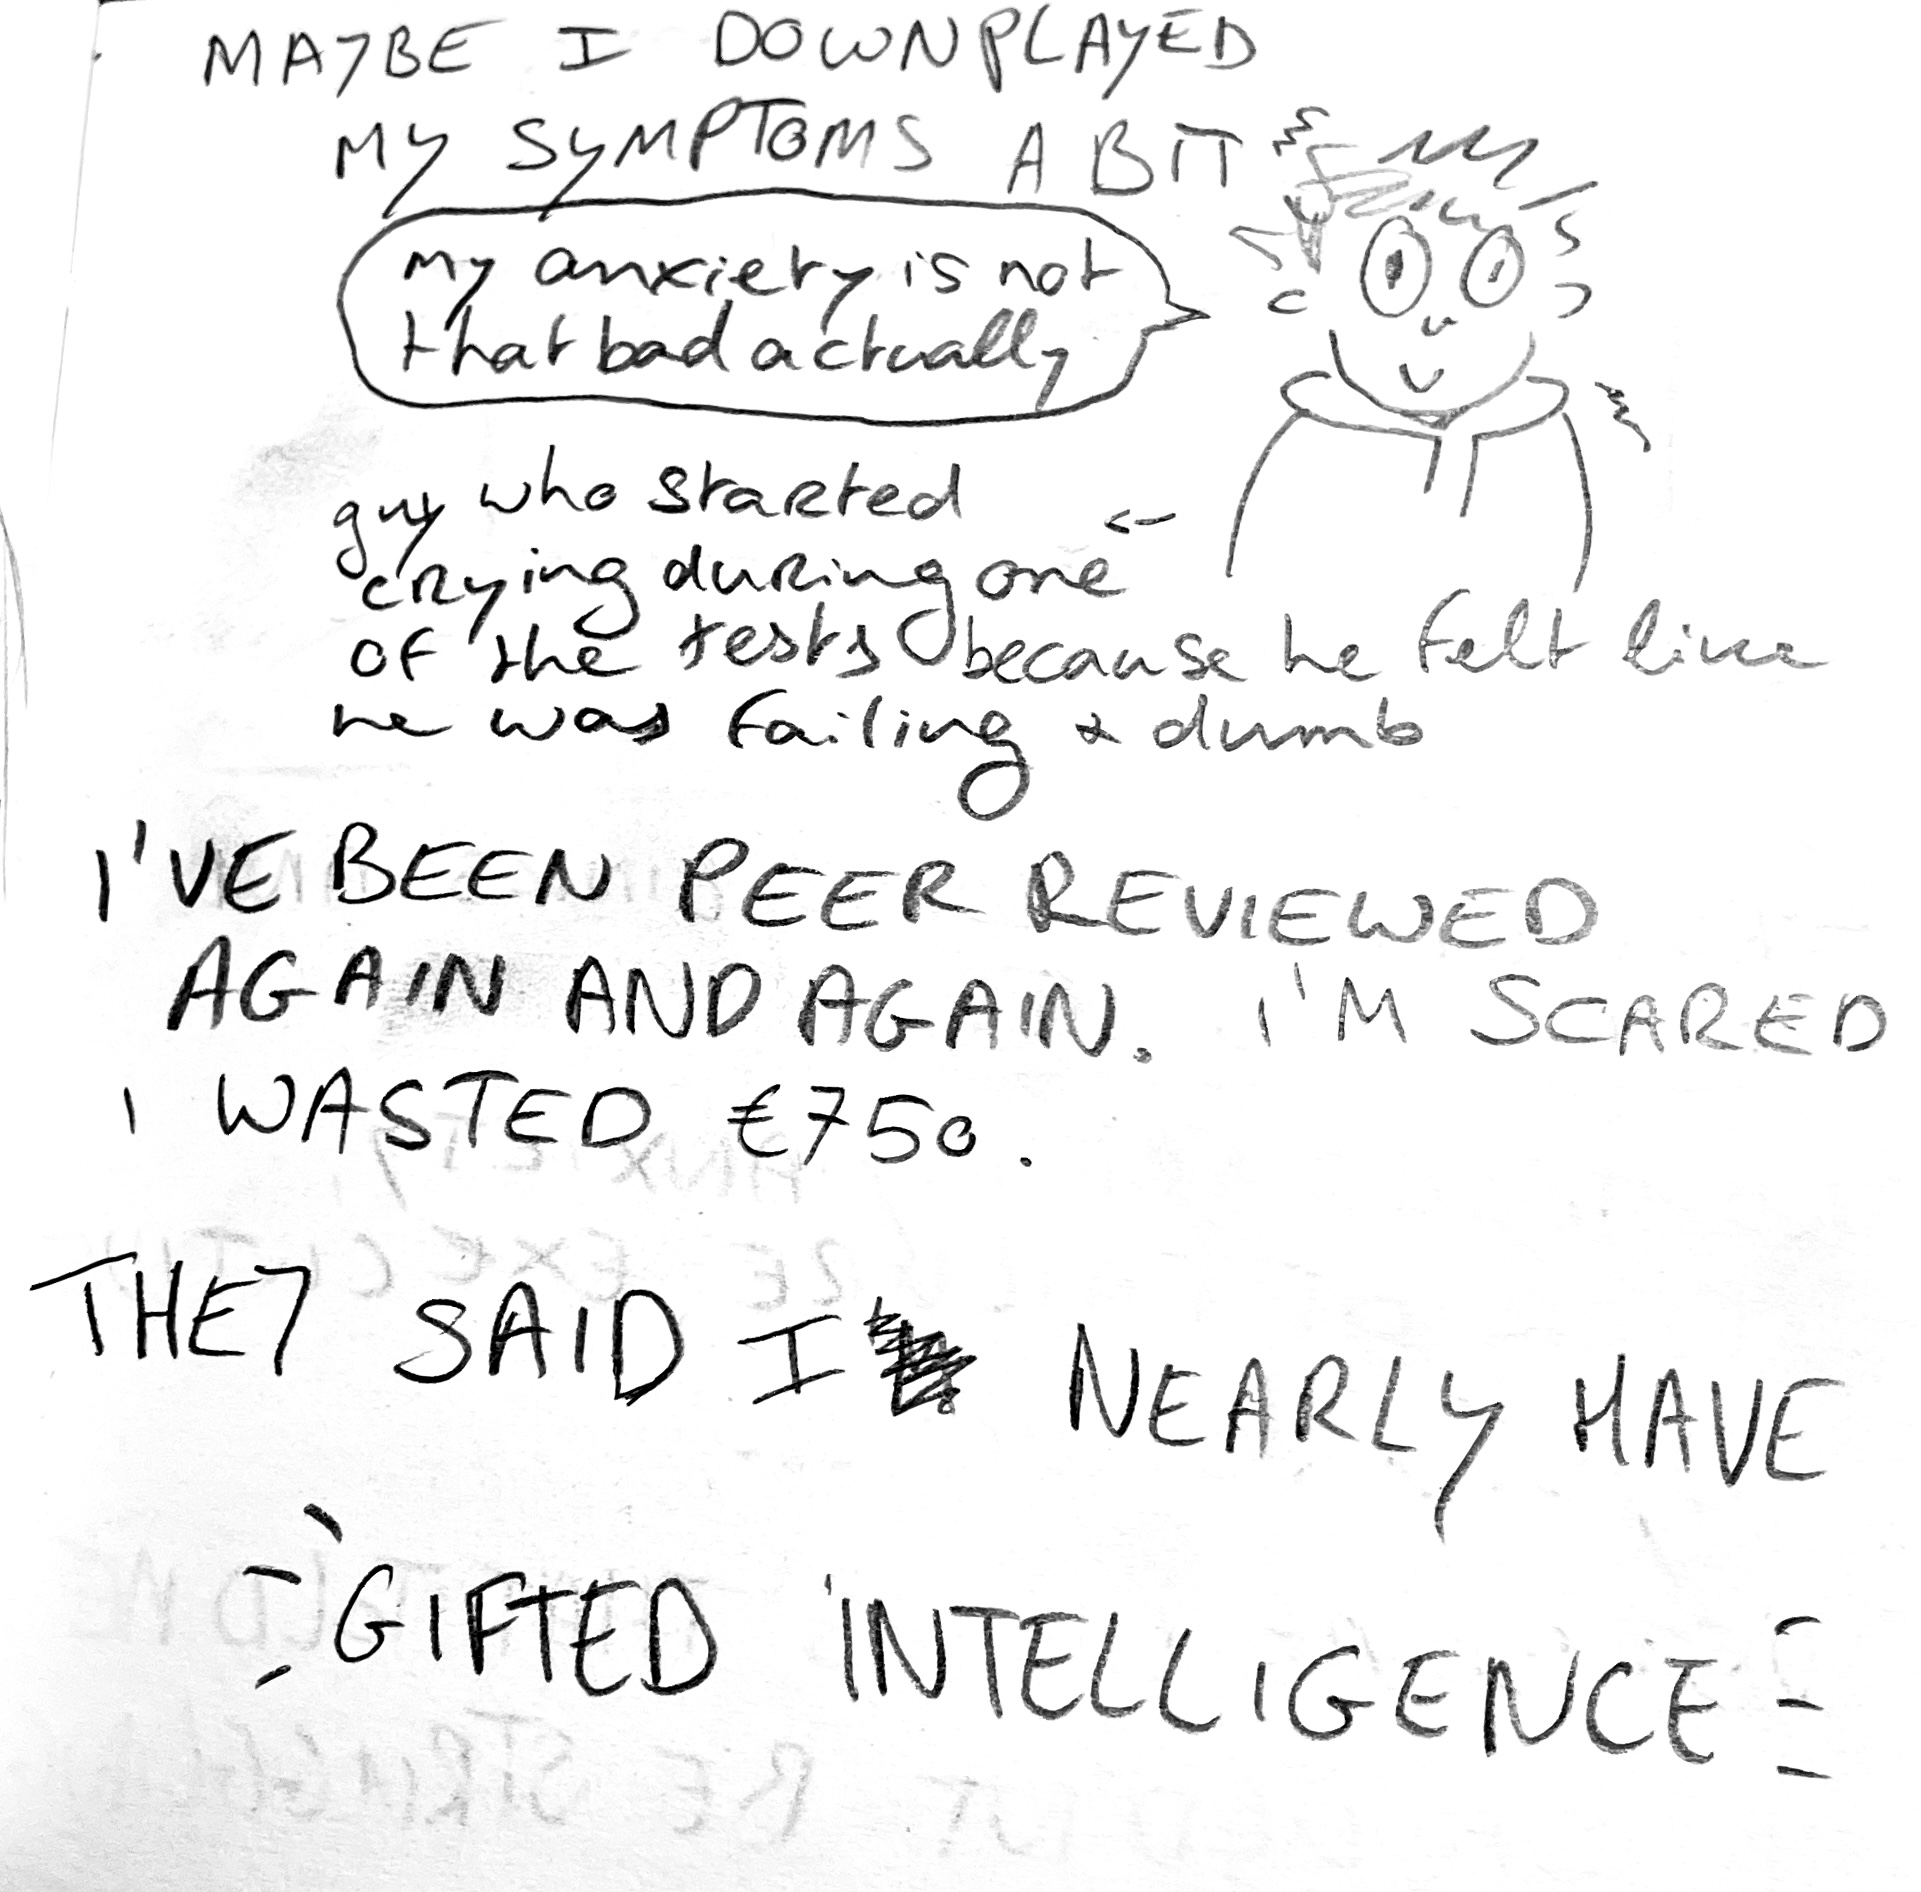 MAYBE I DOWNPLAYED
MY SYMPTOMS A BIT
my anxiety is not
that bad actually
guy who started
crying during one
of the tests because he felt like
he was failing & dumb
I'VE BEEN PEER REVIEWED
AGAIN AND AGAIN. I'M SCARED
I WASTED €750.
THEY SAID I NEARLY HAVE
GIFTED INTELLIGENCE